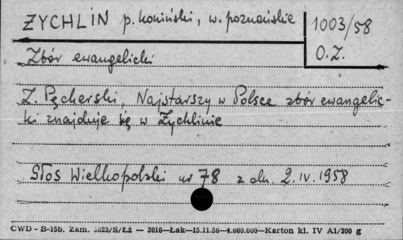 ŻYCHLIN p. koniński, w. poznańskie
1003/58
O.Z.
Zbór ewangelicki
Z. Pęcherski, Najstarszy w Polsce zbór ewangelic-
ki znajduje się w Żychlinie
Głos Wielkopolski nr 78 z dn. 2.IV.1958
CWD - B-15b. Zam. 5823/S/Łż — 3016—Łak—15.11.56—4.000.000—Karton kl. IV A1/200 g